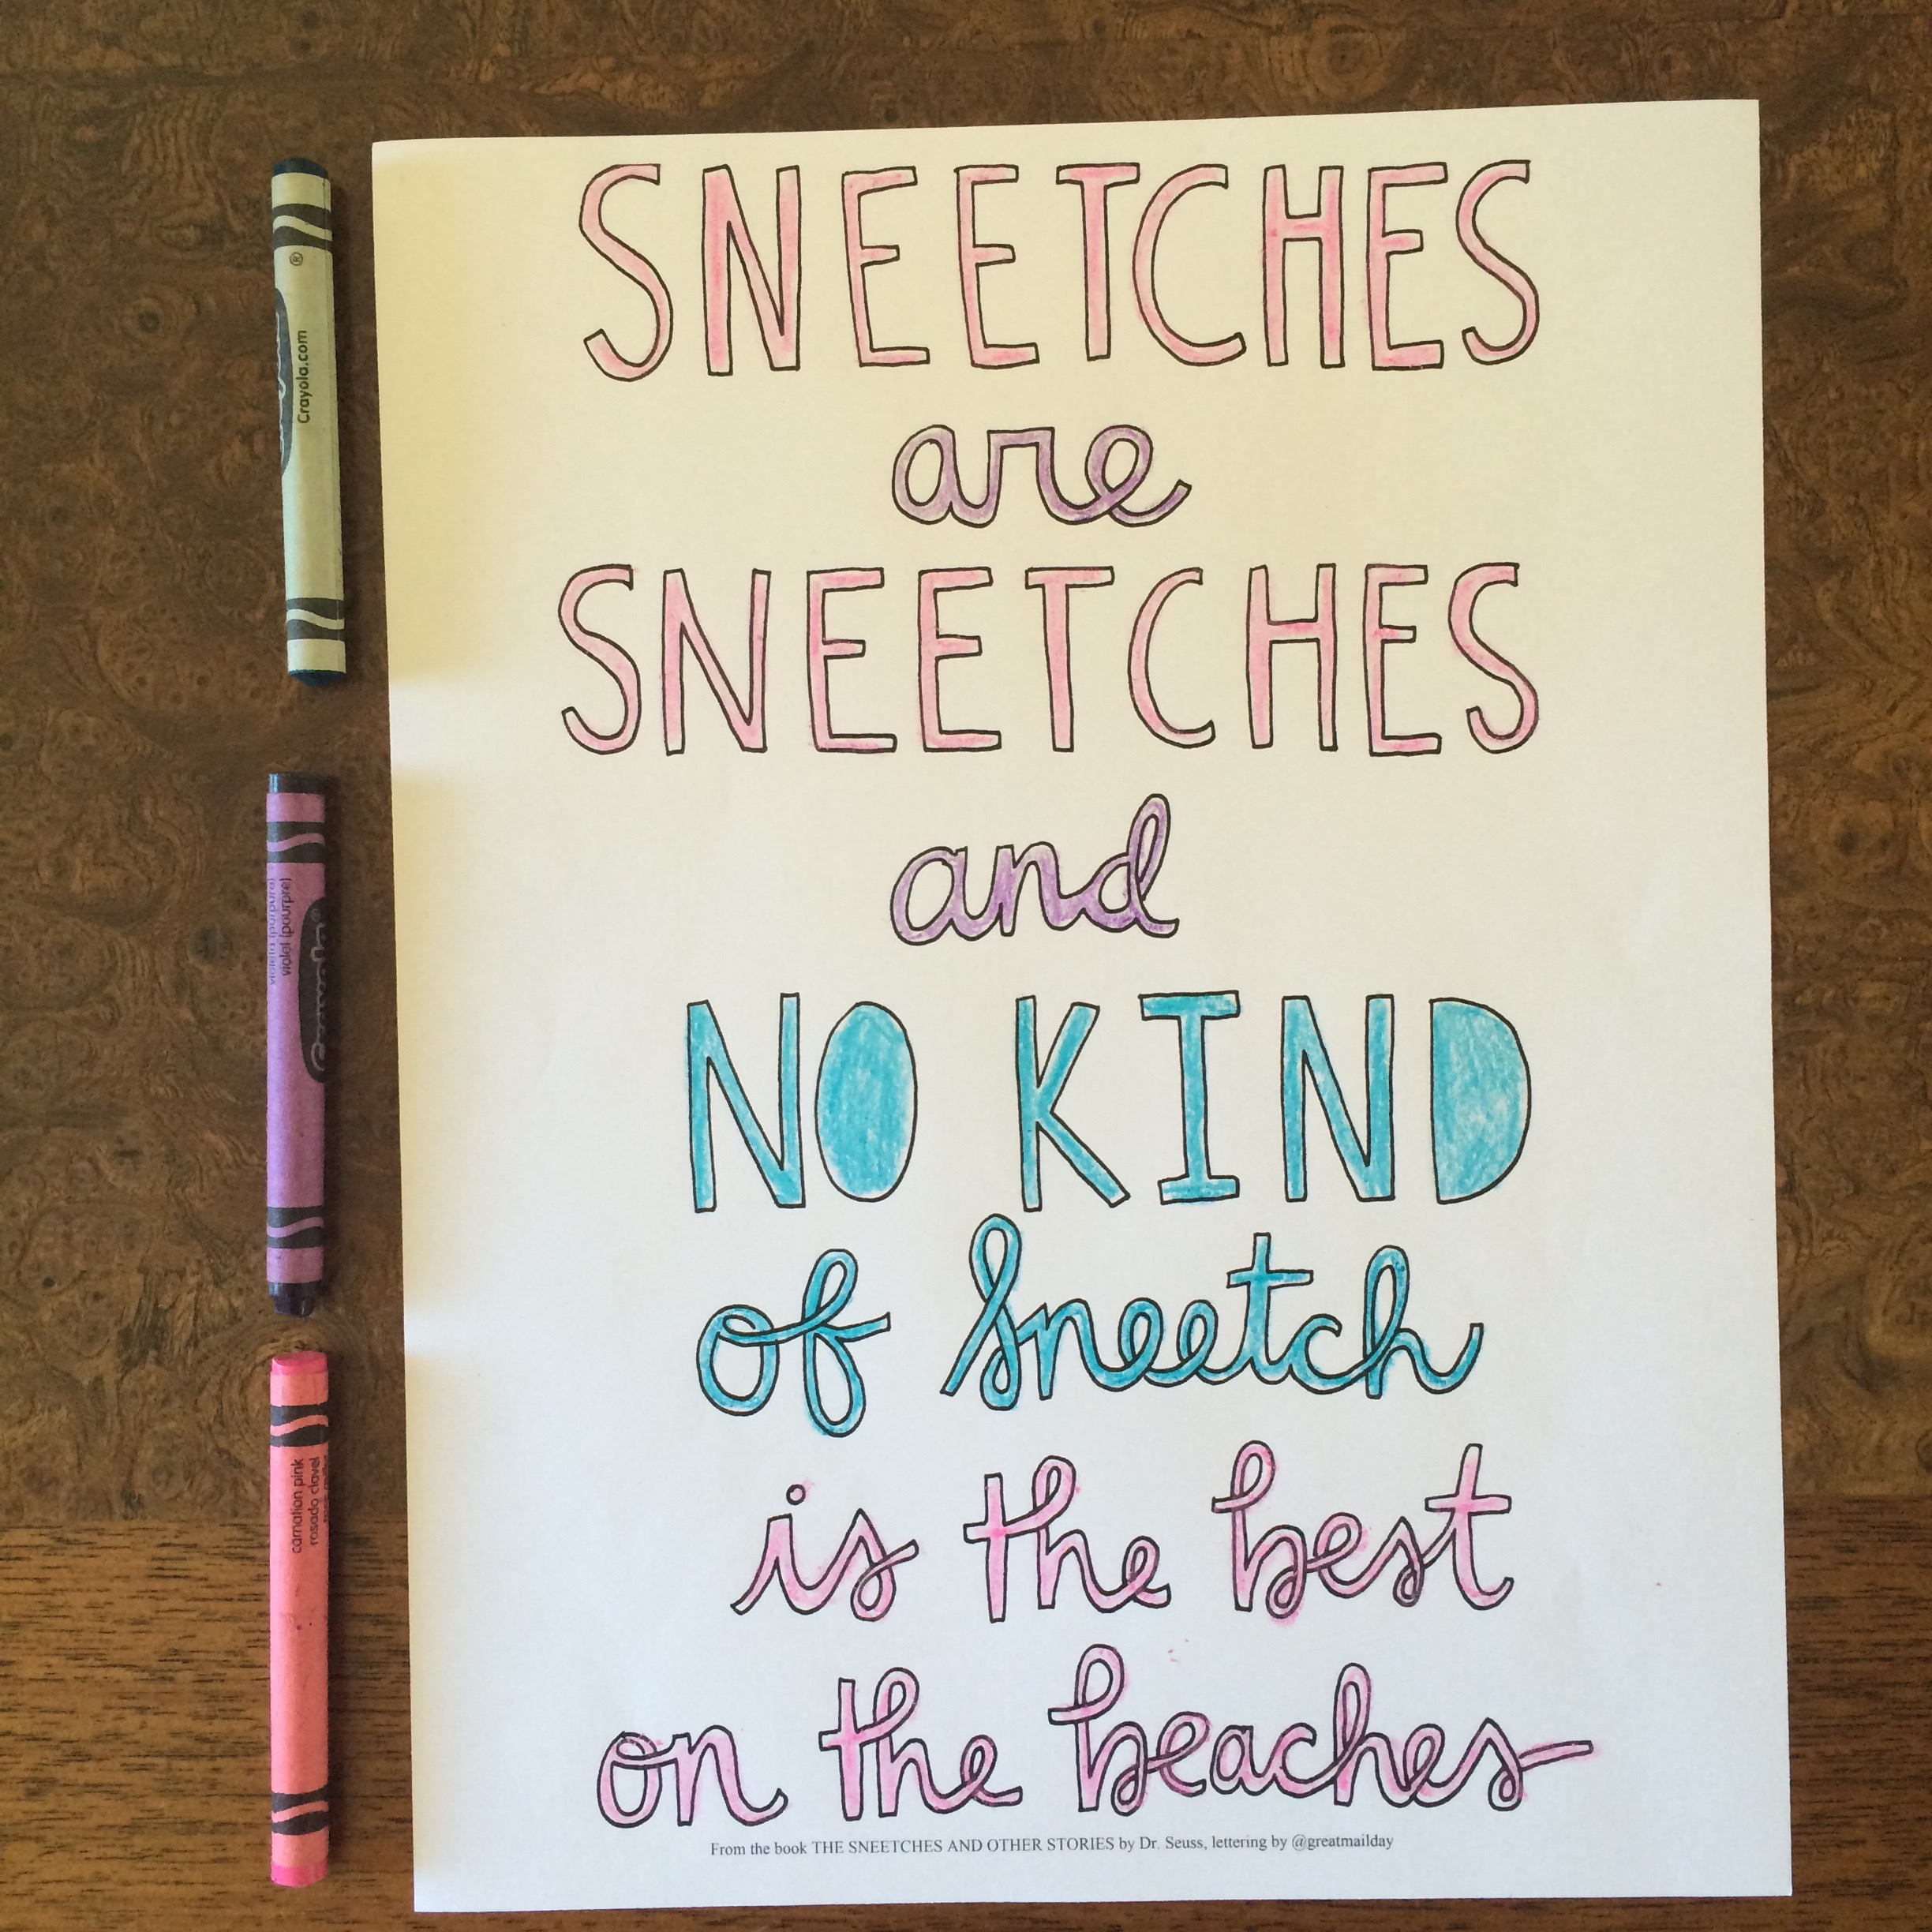 SNEETCHES
are
SNEETCHES
and
NO KIND
of Sneetch
is the best
on the beaches
From the book THE SNEETCHES AND OTHER STORIES by Dr. Seuss, lettering by @greatmailday
Crayola.com
®
violeta (púrpura)
violet (pourpre)
carnation pink
rosado clavel